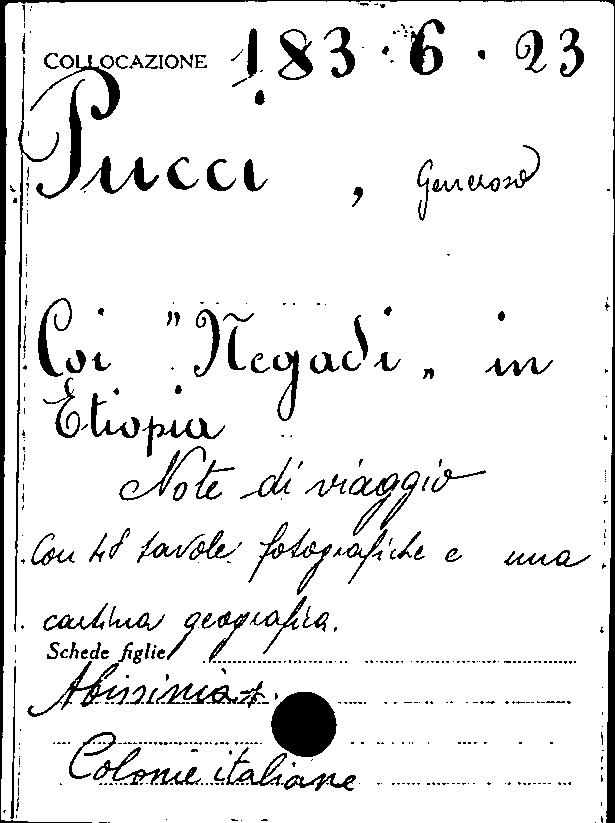 COLLOCAZIONE 183.6.23
Pucci, Generoso
Coi "Negadi„ in
Etiopia
Note di viaggio
Con 48 tavole fotografiche e una
cartina geografica.
Schede figlie
Abissinia*.
Colonie italiane